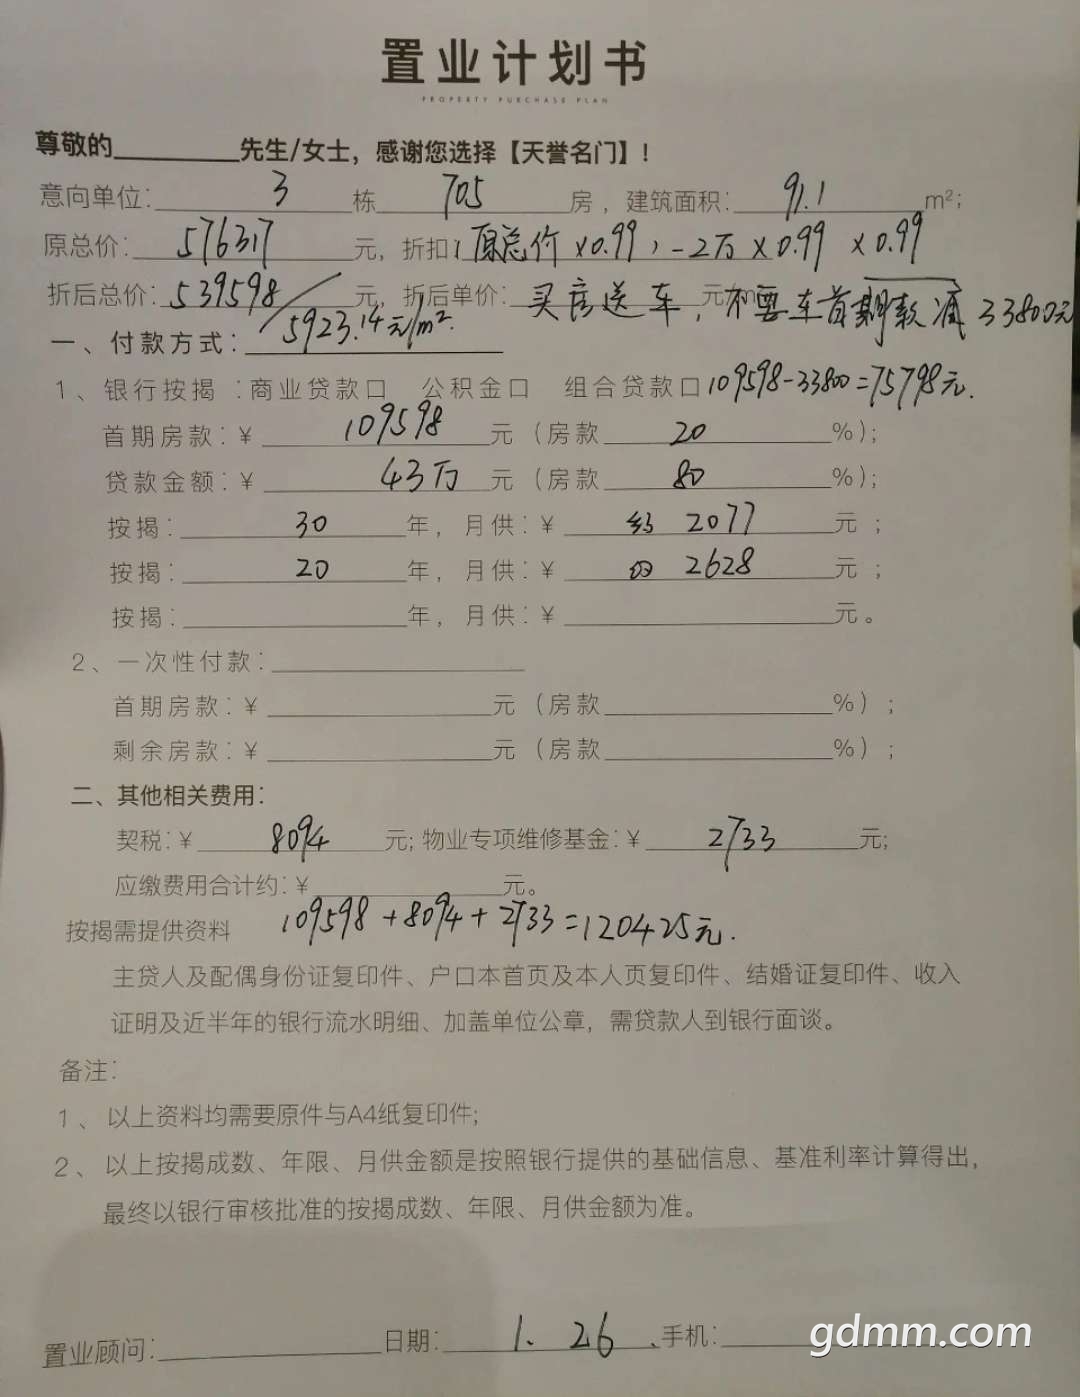 置业计划书
PROPERTY PURCHASE PLAN
尊敬的________先生/女士，感谢您选择【天誉名门】！
意向单位：3栋705房，建筑面积：91.1m²；
原总价：576317元，折扣（原总价×0.99）-2万×0.99×0.99
折后总价：539598元，折后单价：元/m 买房送车，不要车首期款减33800元
5923.14元/m².
一、付款方式：________
1、银行按揭：商业贷款口 公积金口 组合贷款口109598-33800=75798元.
首期房款：¥109598元（房款20%）；
贷款金额：¥43万元（房款80%）；
按揭：30年，月供：¥约2077元；
按揭：20年，月供：¥约2628元；
按揭：________年，月供：¥________元。
2、一次性付款：________
首期房款：¥________元（房款________%）；
剩余房款：¥________元（房款________%）；
二、其他相关费用：
契税：¥8094元；物业专项维修基金：¥2733元；
应缴费用合计约：¥________元。
按揭需提供资料 109598+8094+2733=120425元.
主贷人及配偶身份证复印件、户口本首页及本人页复印件、结婚证复印件、收入
证明及近半年的银行流水明细、加盖单位公章，需贷款人到银行面谈。
备注：
1、以上资料均需要原件与A4纸复印件；
2、以上按揭成数、年限、月供金额是按照银行提供的基础信息、基准利率计算得出，
最终以银行审核批准的按揭成数、年限、月供金额为准。
置业顾问：________日期：1.26、手机：________
gdmm.com